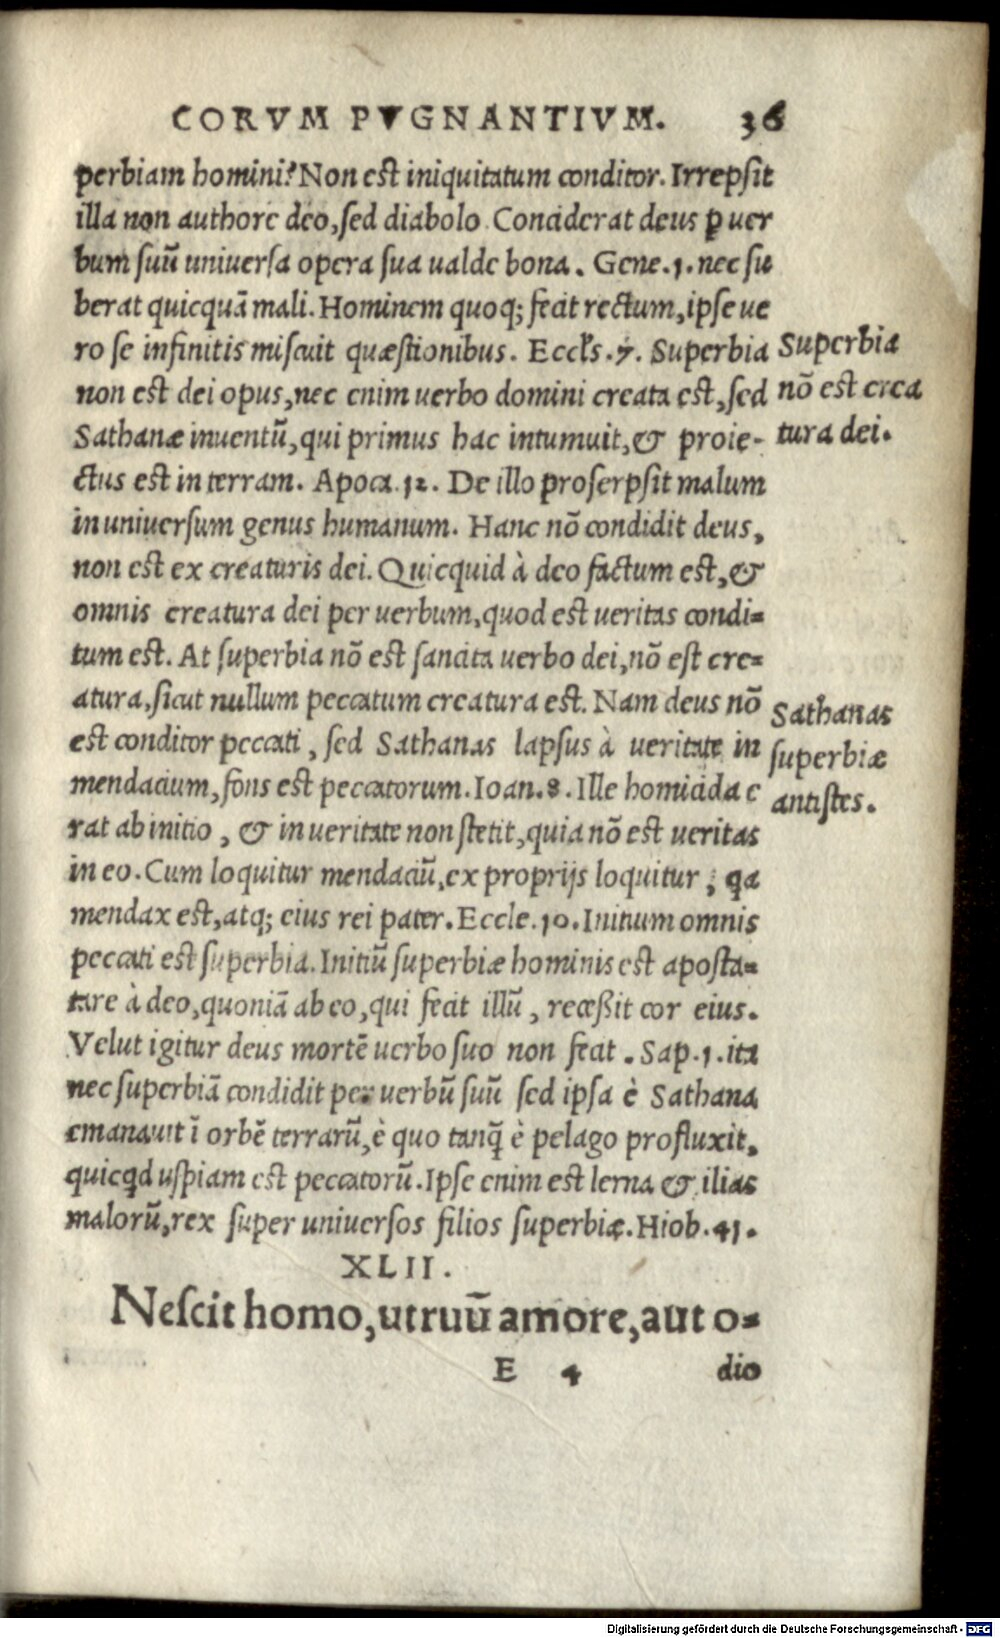 CORVM PVGNANTIVM. 36
perbiam homini? Non est iniquitatum conditor. Irrepsit
illa non authore deo, sed diabolo. Condiderat deus ꝑ uer
bum suū uniuersa opera sua ualde bona. Gene.1. nec su
berat quicquā mali. Hominem quoq; fecit rectum, ipse ue
ro se infinitis miscuit quæstionibus. Eccls.7. Superbia
non est dei opus, nec enim uerbo domini creata est, sed
Sathanæ inuentū, qui primus hac intumuit, & proie-
ctus est in terram. Apoca.12. De illo proserpsit malum
in uniuersum genus humanum. Hanc nō condidit deus,
non est ex creaturis dei. Quicquid à deo factum est, &
omnis creatura dei per uerbum, quod est ueritas condi=
tum est. At superbia nō est sancita uerbo dei, nō est cre=
atura, sicut nullum peccatum creatura est. Nam deus nō
est conditor peccati, sed Sathanas lapsus à ueritate in
mendacium, fons est peccatorum. Ioan.8. Ille homicida e
rat ab initio, & in ueritate non stetit, quia nō est ueritas
in eo. Cum loquitur mendaciū, ex proprijs loquitur, qa
mendax est, atq; eius rei pater. Eccle.10. Initium omnis
peccati est superbia. Initiū superbiæ hominis est aposta=
tare à deo, quoniā ab eo, qui fecit illū, recessit cor eius.
Velut igitur deus mortē uerbo suo non fecit. Sap.1. ita
nec superbiā condidit per uerbū suū sed ipsa è Sathana
emanauit ī orbē terrarū, è quo tanq̄ è pelago profluxit,
quicqd uspiam est peccatorū. Ipse enim est lerna & ilias
malorū, rex super uniuersos filios superbiæ. Hiob.41.
Superbia
nō est crea
tura dei.
Sathanas
superbiæ
antistes.
XLII.
Nescit homo, utruū amore, aut o=
E 4 dio
Digitalisierung gefördert durch die Deutsche Forschungsgemeinschaft - DFG